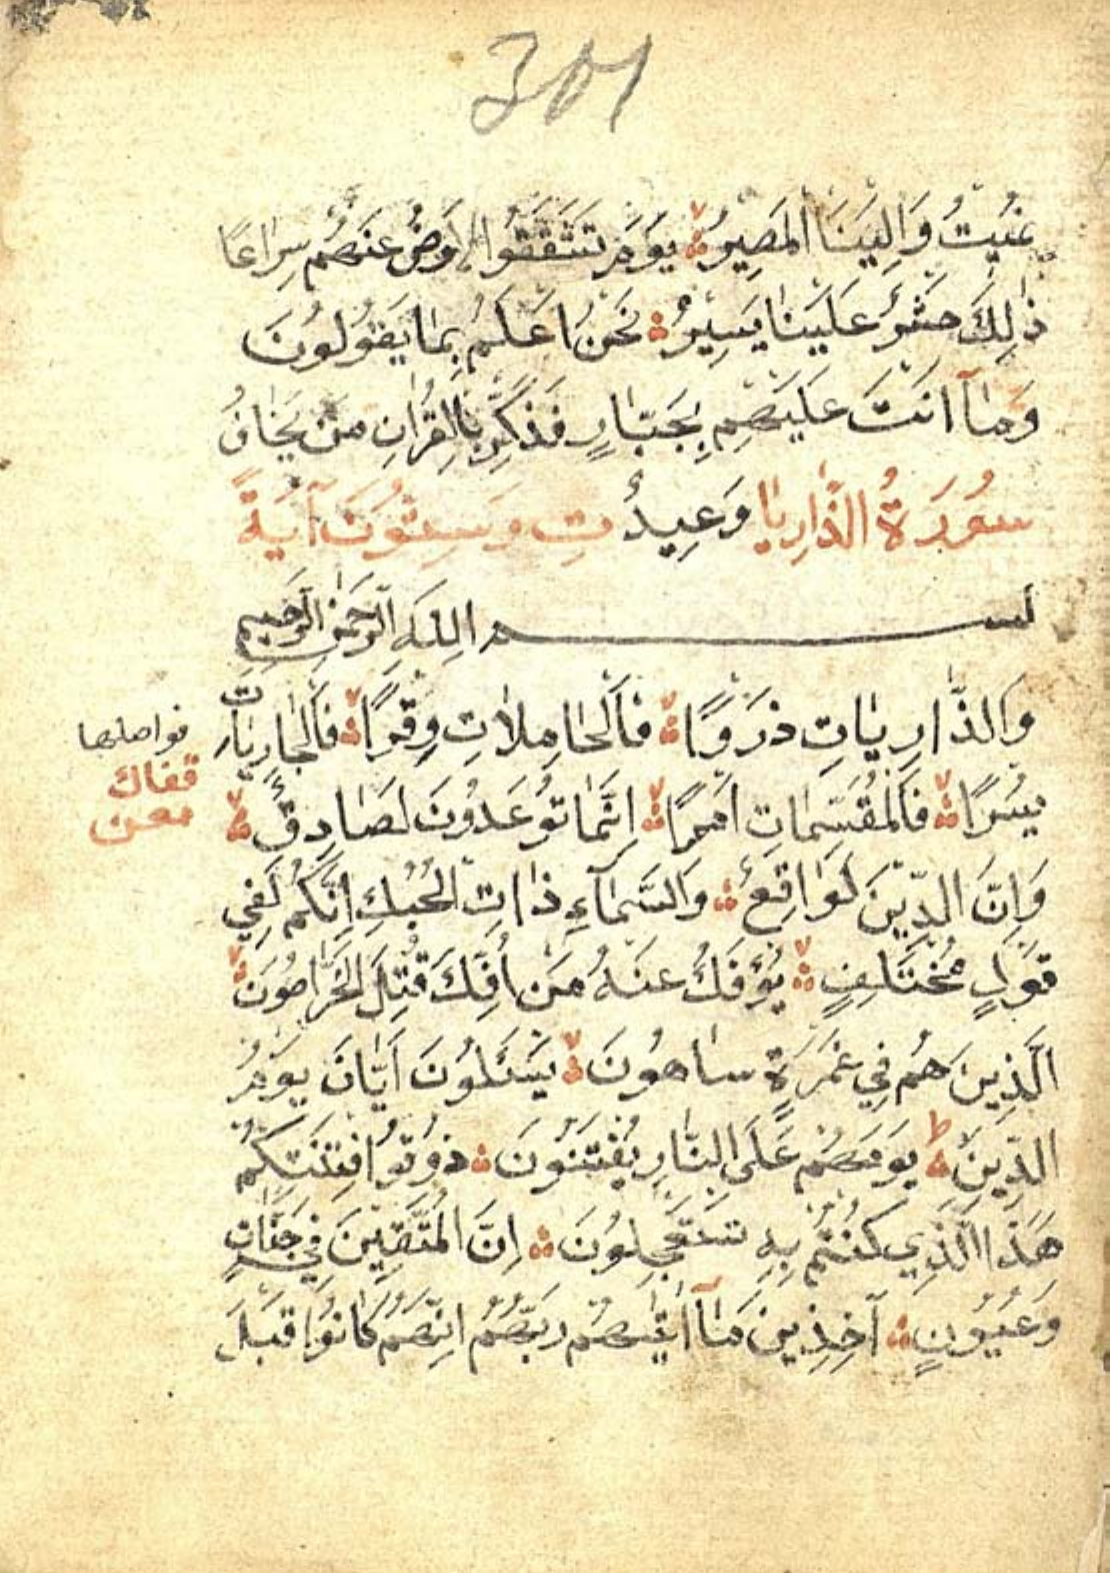 301
نُمِيتُ وَاِلَيْنَا الْمَصِيرُ يَوْمَ تَشَقَّقُ الْاَرْضُ عَنْهُمْ سِرَاعًا
ذٰلِكَ حَشْرٌ عَلَيْنَا يَسِيرٌ نَحْنُ اَعْلَمُ بِمَا يَقُولُونَ
وَمَآ اَنْتَ عَلَيْهِمْ بِجَبَّارٍ فَذَكِّرْ بِالْقُرْاٰنِ مَنْ يَخَافُ
سُورَةُ الذَّارِيَا وَعِيدِ تِ وَسِتُّونَ آيَةً
بسم اللهِ الرَّحْمٰنِ الرَّحِيمِ
وَالذَّارِيَاتِ ذَرْوًا فَالْحَامِلَاتِ وِقْرًا فَالْجَارِيَاتِ
يُسْرًا فَالْمُقَسِّمَاتِ اَمْرًا اِنَّمَا تُوعَدُونَ لَصَادِقٌ
وَاِنَّ الدِّينَ لَوَاقِعٌ وَالسَّمَآءِ ذَاتِ الْحُبُكِ اِنَّكُمْ لَفِي
قَوْلٍ مُخْتَلِفٍ يُؤْفَكُ عَنْهُ مَنْ اُفِكَ قُتِلَ الْخَرَّاصُونَ
اَلَّذِينَ هُمْ فِي غَمْرَةٍ سَاهُونَ يَسْئَلُونَ اَيَّانَ يَوْمُ
الدِّينِ يَوْمَ هُمْ عَلَى النَّارِ يُفْتَنُونَ ذُوقُوا فِتْنَتَكُمْ
هٰذَا الَّذِي كُنْتُمْ بِهِ تَسْتَعْجِلُونَ اِنَّ الْمُتَّقِينَ فِي جَنَّاتٍ
وَعُيُونٍ آخِذِينَ مَآ اٰتٰيهُمْ رَبُّهُمْ اِنَّهُمْ كَانُوا قَبْلَ
فواصلها
قفاك
معن